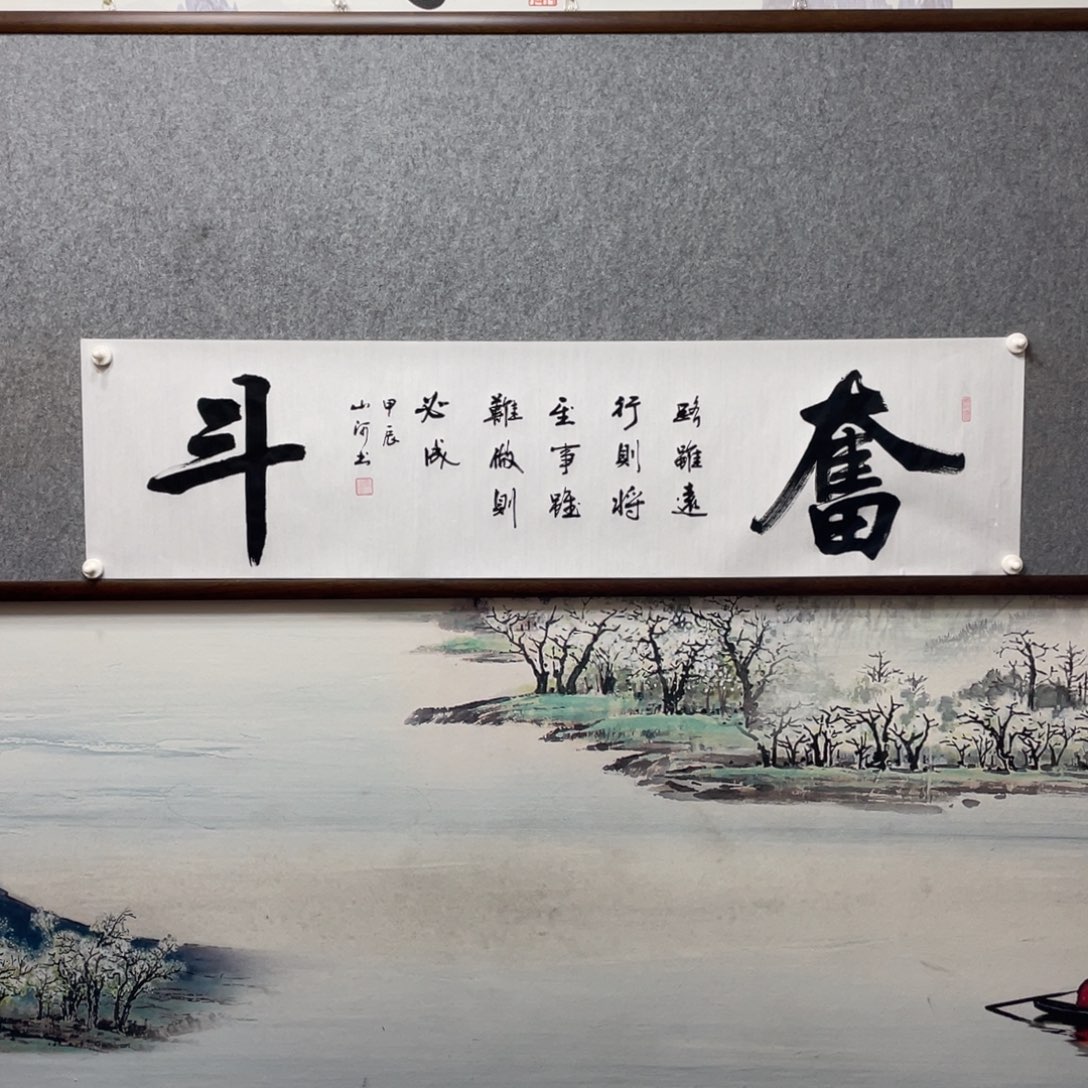 奮
路雖遠
行則将
至事雖
難做則
必成
甲辰
山河书
斗